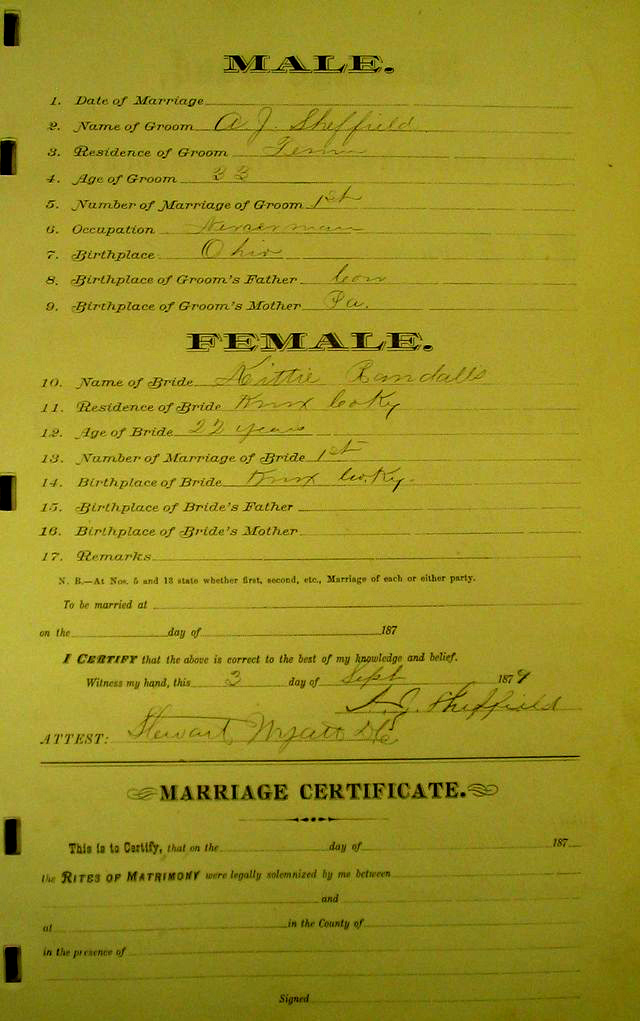 MALE.
1. Date of Marriage
2. Name of Groom A. J. Sheffield
3. Residence of Groom Tenn
4. Age of Groom 33
5. Number of Marriage of Groom 1st
6. Occupation
7. Birthplace Ohio
8. Birthplace of Groom's Father Con
9. Birthplace of Groom's Mother Pa.
FEMALE.
10. Name of Bride Kittie Randalls
11. Residence of Bride Knox Co Ky
12. Age of Bride 22 years
13. Number of Marriage of Bride 1st
14. Birthplace of Bride Knox Co. Ky.
15. Birthplace of Bride's Father
16. Birthplace of Bride's Mother
17. Remarks
N. B.—At Nos. 5 and 13 state whether first, second, etc., Marriage of each or either party.
To be married at
on the day of 187
I CERTIFY that the above is correct to the best of my knowledge and belief.
Witness my hand, this 3 day of Sept 1879
A. J. Sheffield
ATTEST: Stewart Wyatt DC
MARRIAGE CERTIFICATE.
This is to Certify, that on the day of 187
the RITES OF MATRIMONY were legally solemnized by me between
and
at in the County of
in the presence of
Signed